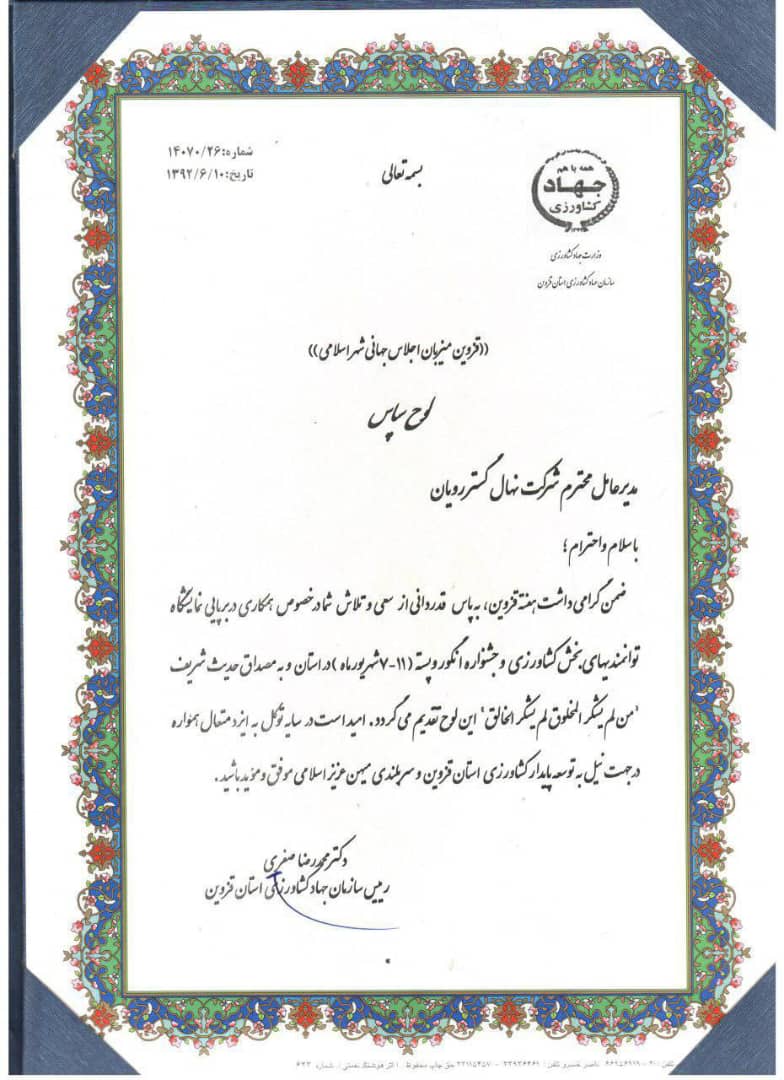 بسمه تعالی
شماره: ۱۴۰۷۰/۲۶
تاریخ: ۱۳۹۲/۶/۱۰
همه با هم
جهاد
کشاورزی
وزارت جهاد کشاورزی
سازمان جهاد کشاورزی استان قزوین
((قزوین میزبان اجلاس جهانی شهر اسلامی))
لوح سپاس
مدیرعامل محترم شرکت نهال گستر رویان
با سلام و احترام ؛
ضمن گرامی داشت هفته قزوین، به پاس قدردانی از سعی و تلاش شما در خصوص همکاری در برپایی نمایشگاه
توانمندیهای بخش کشاورزی و جشنواره انگور و پسته (۱۱-۷ شهریور ماه) در استان و به مصداق حدیث شریف
"من لم یشکر المخلوق لم یشکر الخالق" این لوح تقدیم می گردد. امید است در سایه توکل به ایزد متعال همواره
در جهت نیل به توسعه پایدار کشاورزی استان قزوین و سربلندی میهن عزیز اسلامی موفق و مؤید باشید.
دکتر محمدرضا صفری
رییس سازمان جهاد کشاورزی استان قزوین
ناصر خسرو تلفن: ۳۳۹۳۶۴۶۱ - ۳۳۱۱۵۴۵۷ حق چاپ محفوظ / اثر هوشنگ نعمتی / شماره ۶۳۳